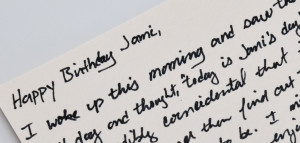 Happy Birthday Jami,
I woke up this morning and saw the
day and thought, "today is Jami's day
coincidental that
then find out
to be. I